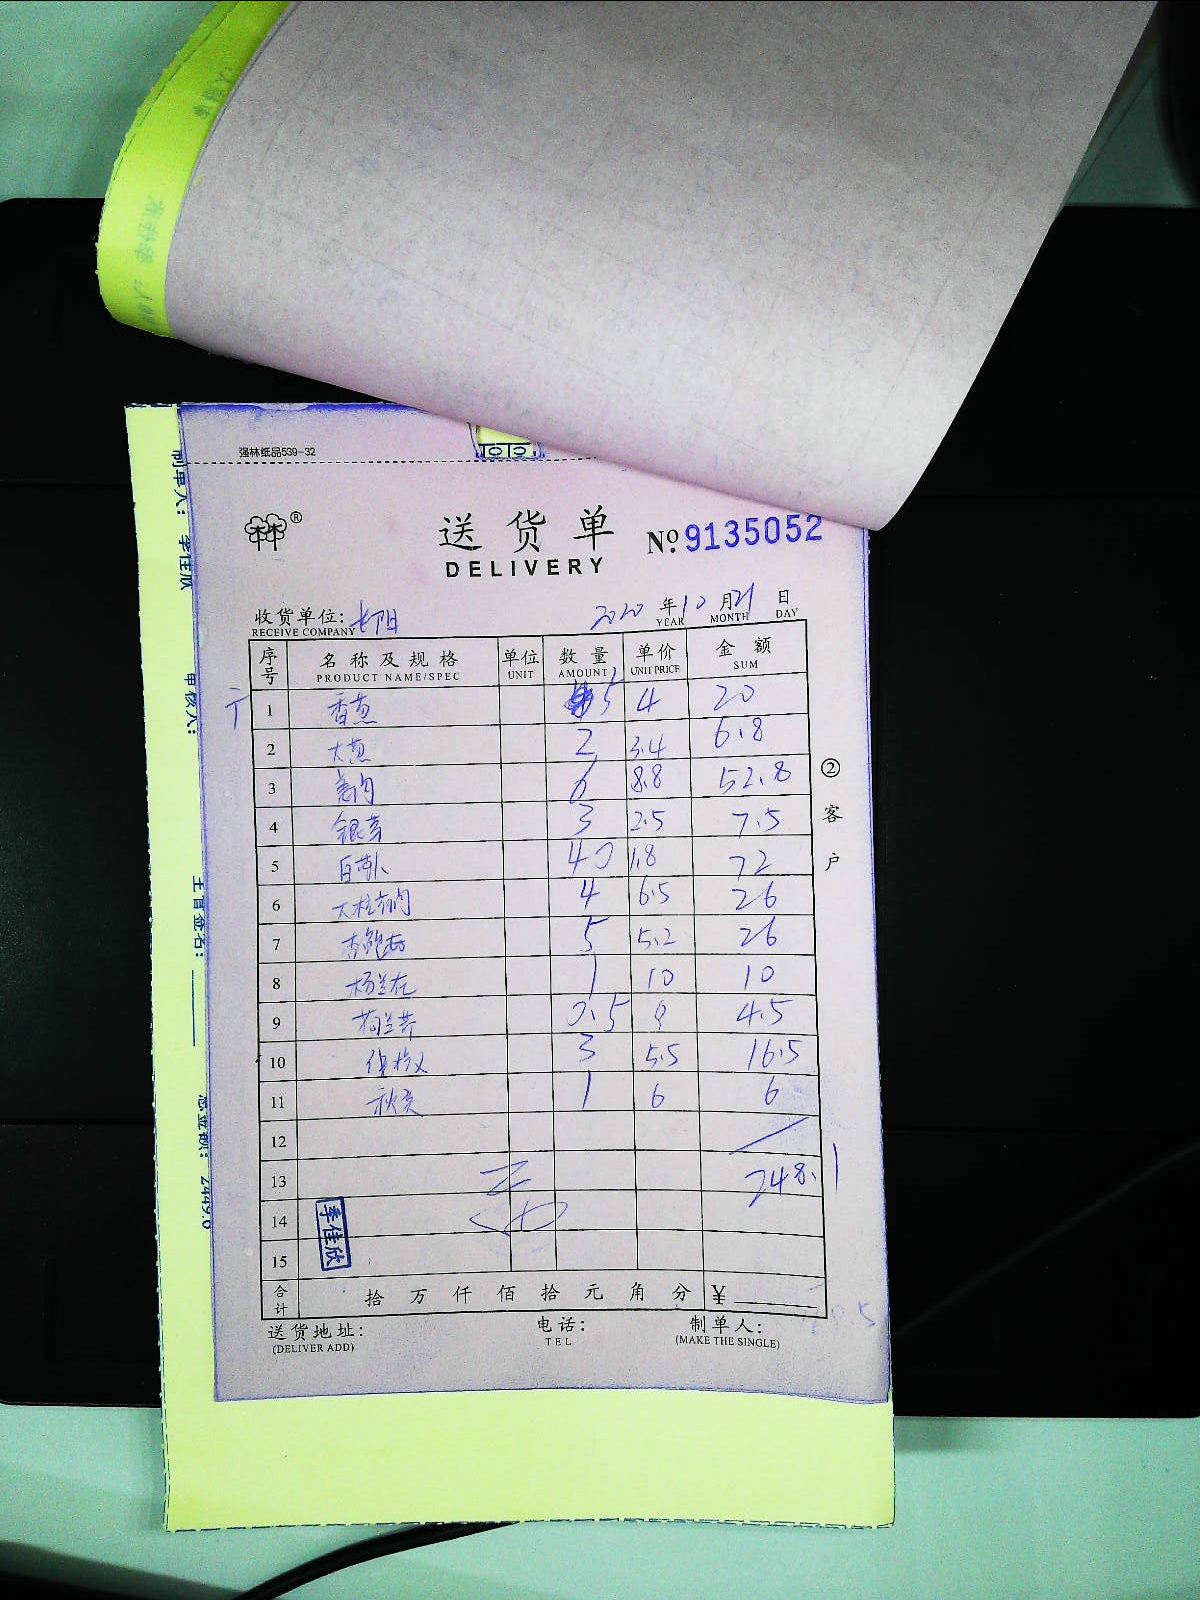 强林纸品539-32
送货单
№ 9135052
DELIVERY
收货单位: 长阳 2020年10月21日
RECEIVE COMPANY YEAR MONTH DAY
序号 名称及规格 单位 数量 单价 金额
PRODUCT NAME/SPEC UNIT AMOUNT UNIT PRICE SUM
1 香葱 5 4 20
2 大葱 2 3.4 6.8
3 姜肉 6 8.8 52.8
4 银芽 3 2.5 7.5
5 白萝卜 40 1.8 72
6 4 6.5 26
7 5 5.2 26
8 1 10 10
9 荷兰芹 0.5 9 4.5
10 3 5.5 16.5
11 秋葵 1 6 6
12
13 248.1
14
15
季佳欣
合计 拾 万 仟 佰 拾 元 角 分 ¥
送货地址: 电话: 制单人:
(DELIVER ADD) TEL (MAKE THE SINGLE)
②客户
制单人: 季佳欣
审核人:
主管签名:
总金额: 2449.6